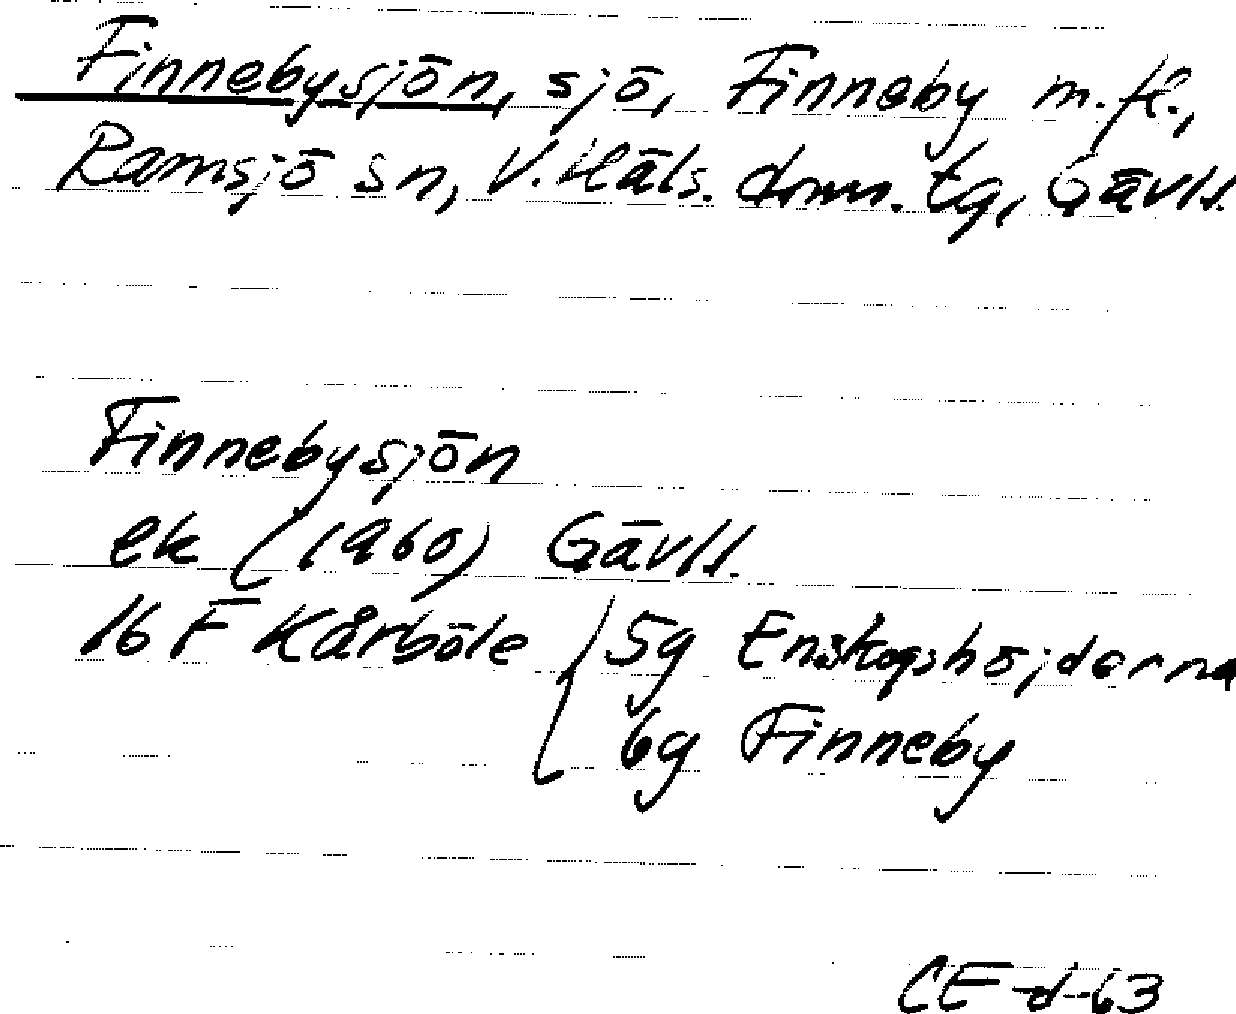 Finnebysjön, sjö, Finneby m.fl.,
Ramsjö sn, V. Häls. doms. tg, Gävll.
Finnebysjön
ek (1960) Gävll.
16 F Kårböle 5g Enskogshöjderna
6g Finneby
CE-d-63